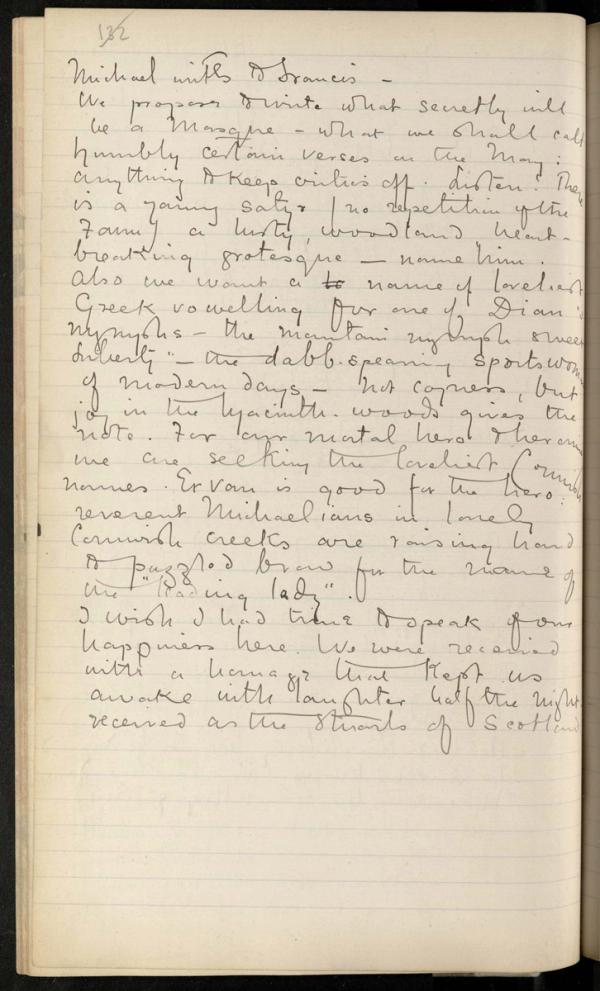 132
Michael writes to Francis –
We propose to write what secretly will
be a Masque – what we shall call
humbly certain verses on the May:
anything to keep critics off. Listen. There
is a young satyr (no repetition of the
Faun) a lusty, woodland heart-
breaking grotesque – name him.
Also we want a to name of loveliest
Greek vowelling for one of Dian's
nymphs – the mountain nymph sweet
Liberty" – the spearing sportswoman
of modern days – not coyness, but
joy in the hyacinth-woods gives the
note. For our mortal hero & heroine
we are seeking the loveliest Cornish
names. Ervan is good for the hero:
reverent Michaelians in lonely
Cornish creeks are raising hand
to puzzled brow for the name of
the "leading lady".
I wish I had time to speak of our
happiness here. We were received
with a homage that kept us
awake with laughter half the night.
received as the Stuarts of Scotland